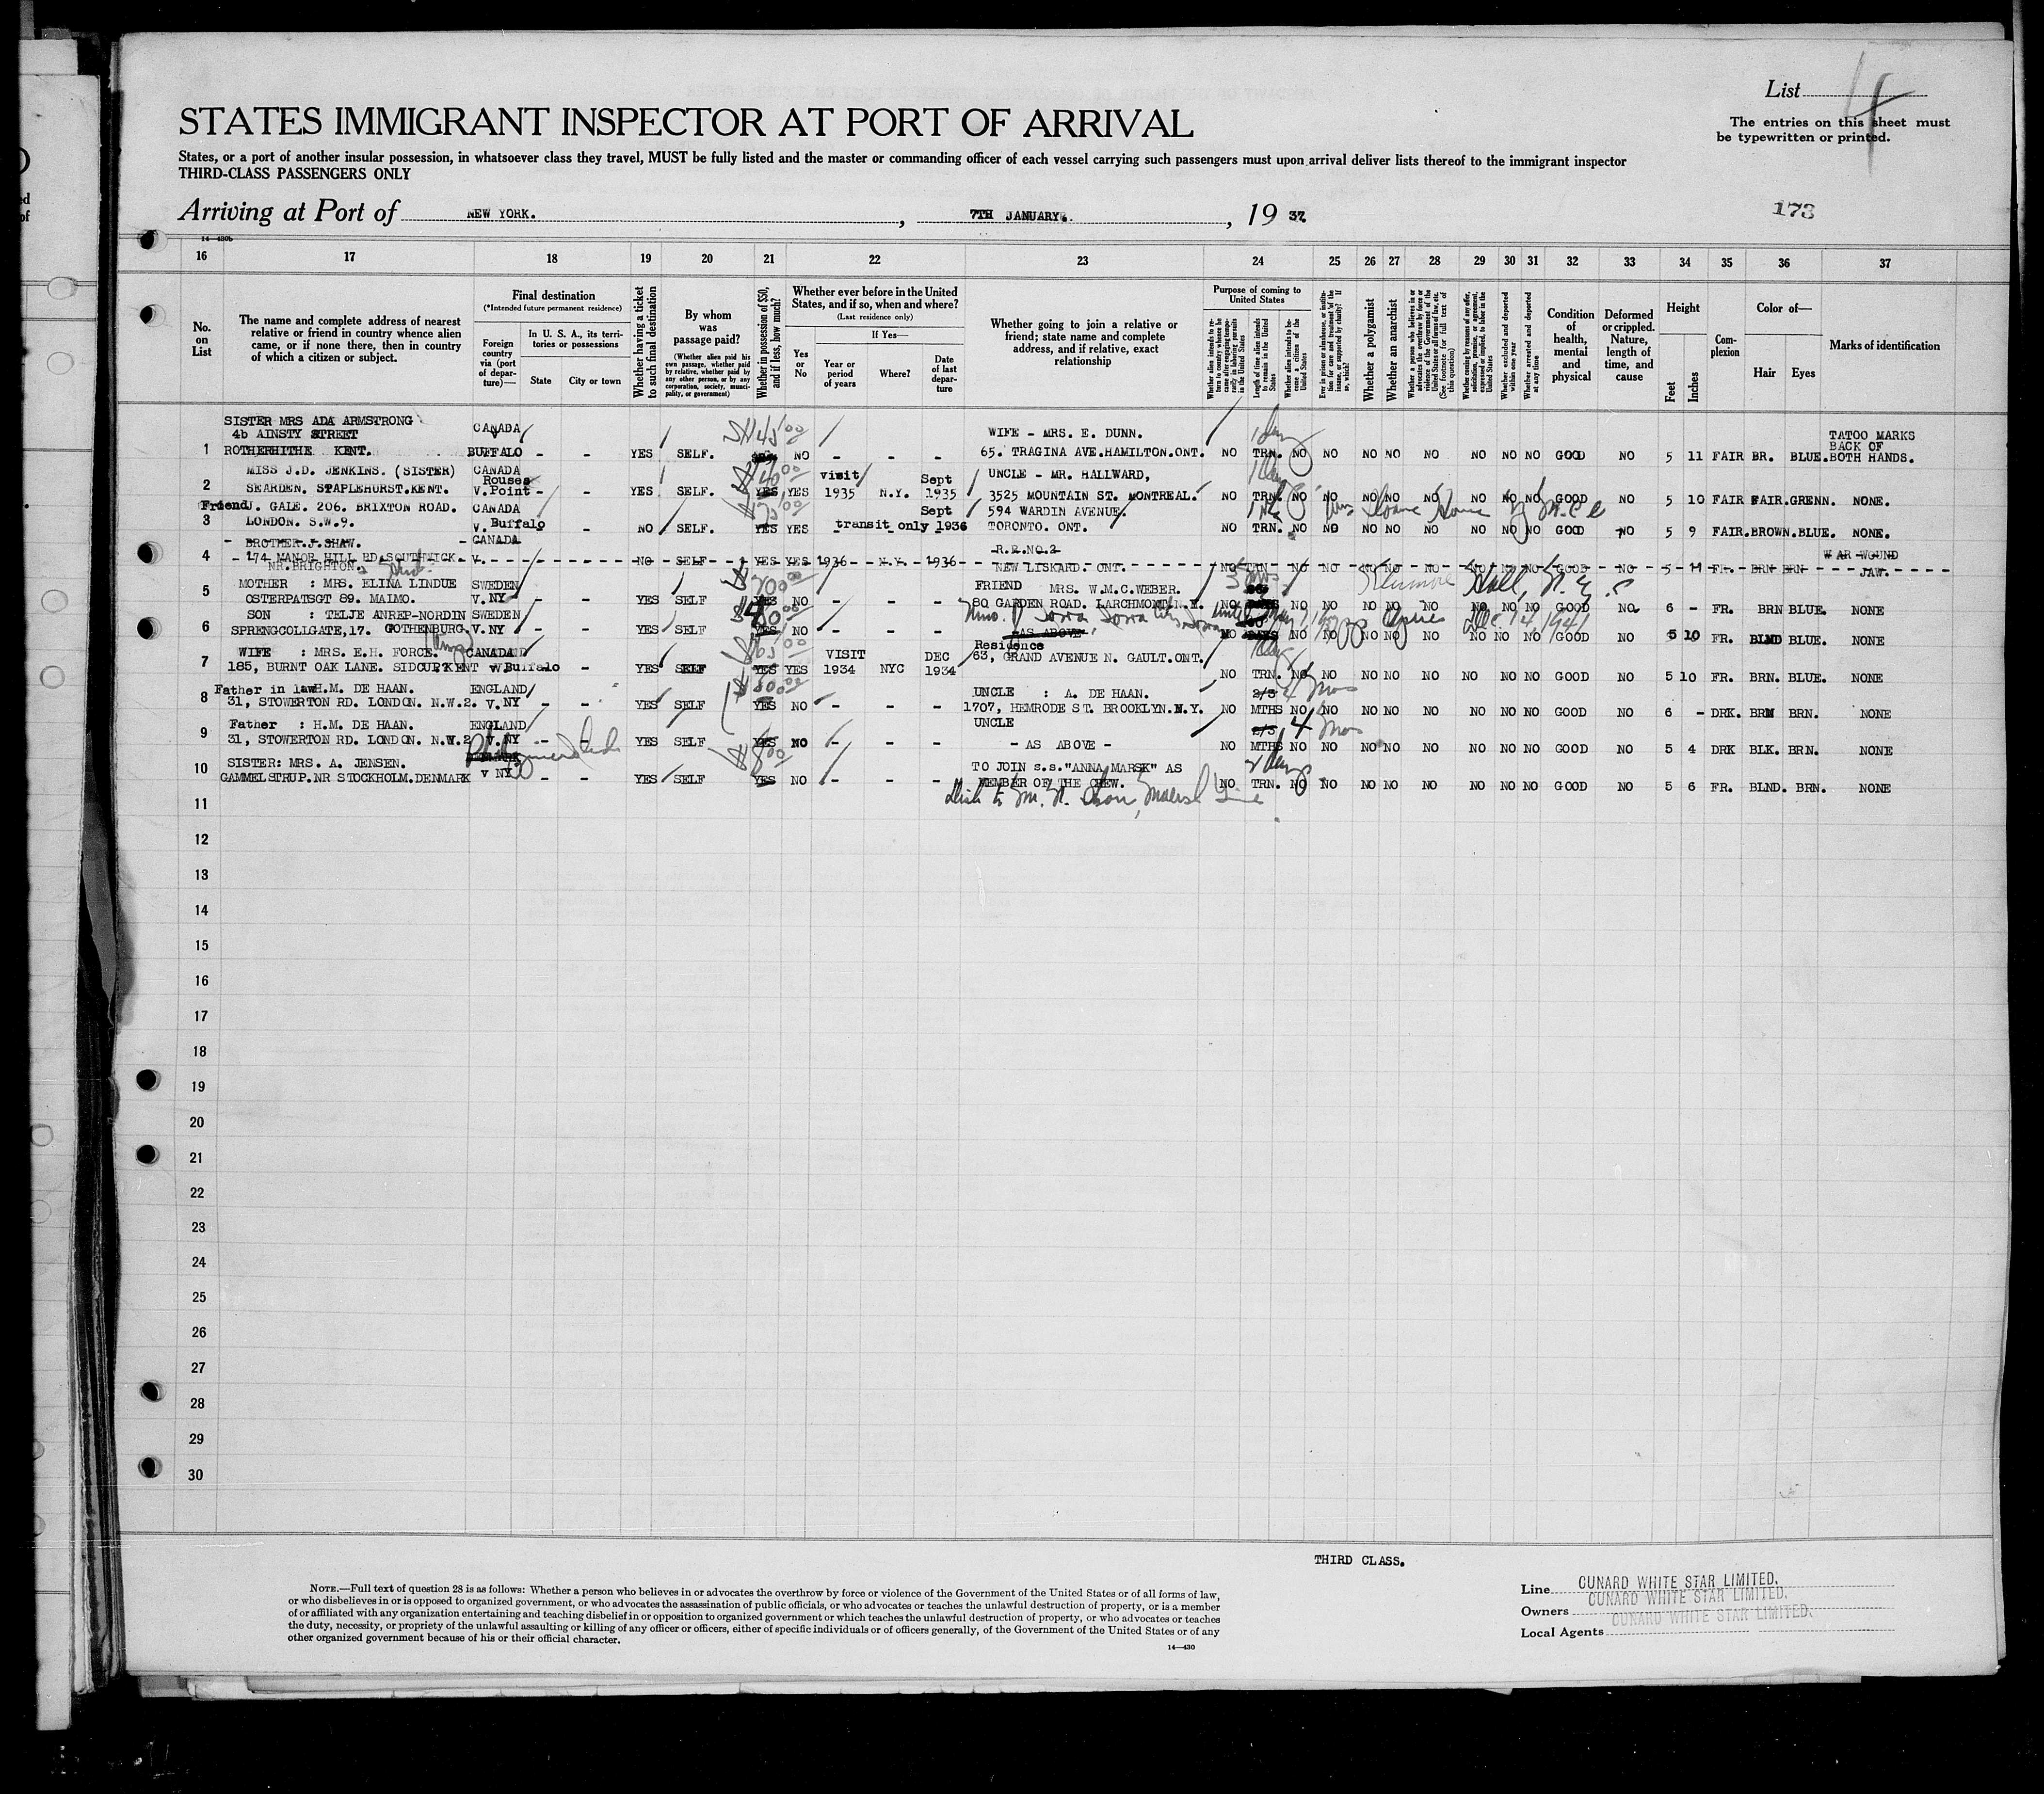 List 4
STATES IMMIGRANT INSPECTOR AT PORT OF ARRIVAL
The entries on this sheet must
be typewritten or printed.
States, or a port of another insular possession, in whatsoever class they travel, MUST be fully listed and the master or commanding officer of each vessel carrying such passengers must upon arrival deliver lists thereof to the immigrant inspector
THIRD-CLASS PASSENGERS ONLY
Arriving at Port of NEW YORK. , 7TH JANUARY. , 19 37.
173
14—430b
16 17 18 19 20 21 22 23 24 25 26 27 28 29 30 31 32 33 34 35 36 37
No. on List
The name and complete address of nearest relative or friend in country whence alien came, or if none there, then in country of which a citizen or subject.
Final destination
(*Intended future permanent residence)
Foreign country via (port of departure)—
In U. S. A., its territories or possessions
State
City or town
Whether having a ticket to such final destination
By whom was passage paid?
(Whether alien paid his own passage, whether paid by relative, whether paid by any other person, or by any corporation, society, municipality, or government)
Whether in possession of $50, and if less, how much?
Whether ever before in the United States, and if so, when and where?
(Last residence only)
Yes or No
If Yes—
Year or period of years
Where?
Date of last departure
Whether going to join a relative or friend; state name and complete address, and if relative, exact relationship
Purpose of coming to United States
Length of time alien intends to remain in the United States
Whether alien intends to become a citizen of the United States
Whether a polygamist
Whether an anarchist
(See footnote for full text of this question)
Whether excluded and deported within one year
Whether arrested and deported at any time
Condition of health, mental and physical
Deformed or crippled. Nature, length of time, and cause
Height
Feet
Inches
Complexion
Color of—
Hair
Eyes
Marks of identification
SISTER MRS ADA ARMSTRONG
4b AINSTY STREET CANADA WIFE - MRS. E. DUNN. TATOO MARKS
1 ROTHERHITHE KENT. BUFFALO - - YES SELF. NO - - - 65. TRAGINA AVE.HAMILTON.ONT. NO TRN. NO NO NO NO NO NO NO NO GOOD NO 5 11 FAIR BR. BLUE. BACK OF BOTH HANDS.
MISS J.D. JENKINS. (SISTER) CANADA Rouses visit Sept UNCLE - MR. HALLWARD,
2 SEARDEN. STAPLEHURST.KENT. V.Point - - YES SELF. YES YES 1935 N.Y. 1935 3525 MOUNTAIN ST. MONTREAL. NO TRN. NO NO NO NO NO NO NO NO GOOD NO 5 10 FAIR FAIR.GRENN. NONE.
Friend J. GALE. 206. BRIXTON ROAD. CANADA Sept 594 WARDIN AVENUE.
3 LONDON. S.W.9. V. Buffalo - NO SELF. YES YES - transit only 1936 TORONTO. ONT. NO TRN. NO NO NO NO NO NO NO NO GOOD NO 5 9 FAIR.BROWN.BLUE. NONE.
BROTHER.J.SHAW. CANADA R.R.NO.2 WAR WOUND
4 174 MANOR HILL RD.SOUTHWICK V. NO SELF YES YES 1936 N.Y. 1936 NEW LISKARD. ONT. NO TRN NO NO NO NO NO NO NO NO GOOD NO 5 11 FR. BRN BRN JAW.
NR.BRIGHTON.
MOTHER : MRS. ELINA LINDUE SWEDEN FRIEND MRS. W.M.C.WEBER.
5 OSTERPATSGT 89. MAIMO. V. NY - - YES SELF YES NO - - - 80 GARDEN ROAD. LARCHMONT.N.Y. NO NO NO NO NO NO NO NO NO GOOD NO 6 - FR. BRN BLUE. NONE
SON : TELJE ANREP-NORDIN SWEDEN
6 SPRENGCOLLGATE,17. GOTHENBURG. V. NY - - YES SELF YES NO - - - AS ABOVE NO NO NO NO NO NO NO NO NO GOOD NO 5 10 FR. BLND BLUE. NONE
WIFE : MRS. E.H. FORCE. CANADA VISIT DEC Residence
7 185, BURNT OAK LANE. SIDCUP.KENT v.Buffalo - YES SELF YES YES 1934 NYC 1934 63, GRAND AVENUE N. GAULT.ONT. NO TRN. NO NO NO NO NO NO NO NO GOOD NO 5 10 FR. BRN. BLUE. NONE
Father in law H.M. DE HAAN. ENGLAND UNCLE : A. DE HAAN. 2/3 4 mos
8 31, STOWERTON RD. LONDON. N.W.2. V. NY - - YES SELF YES NO - - - 1707, HEMRODE ST. BROOKLYN.N.Y. NO MTHS NO NO NO NO NO NO NO NO GOOD NO 6 - DRK. BRN BRN. NONE
Father : H.M. DE HAAN. ENGLAND UNCLE 2/3 4 mos
9 31, STOWERTON RD. LONDON. N.W.2 V. NY - - YES SELF YES NO - - - - AS ABOVE - NO MTHS NO NO NO NO NO NO NO NO GOOD NO 5 4 DRK BLK. BRN. NONE
SISTER: MRS. A. JENSEN. DENMARK TO JOIN s.s."ANNA MARSK" AS
10 GAMMELSTRUP.NR STOCKHOLM.DENMARK v NY - - YES SELF YES NO - - - MEMBER OF THE CREW. NO TRN. NO NO NO NO NO NO NO NO GOOD NO 5 6 FR. BLND. BRN. NONE
11
12
13
14
15
16
17
18
19
20
21
22
23
24
25
26
27
28
29
30
THIRD CLASS.
NOTE.—Full text of question 28 is as follows: Whether a person who believes in or advocates the overthrow by force or violence of the Government of the United States or of all forms of law,
or who disbelieves in or is opposed to organized government, or who advocates the assassination of public officials, or who advocates or teaches the unlawful destruction of property, or is a member
of or affiliated with any organization entertaining and teaching disbelief in or opposition to organized government or which teaches the unlawful destruction of property, or who advocates or teaches
the duty, necessity, or propriety of the unlawful assaulting or killing of any officer or officers, either of specific individuals or of officers generally, of the Government of the United States or of any
other organized government because of his or their official character.
14—430
Line CUNARD WHITE STAR LIMITED.
Owners CUNARD WHITE STAR LIMITED.
Local Agents CUNARD WHITE STAR LIMITED.